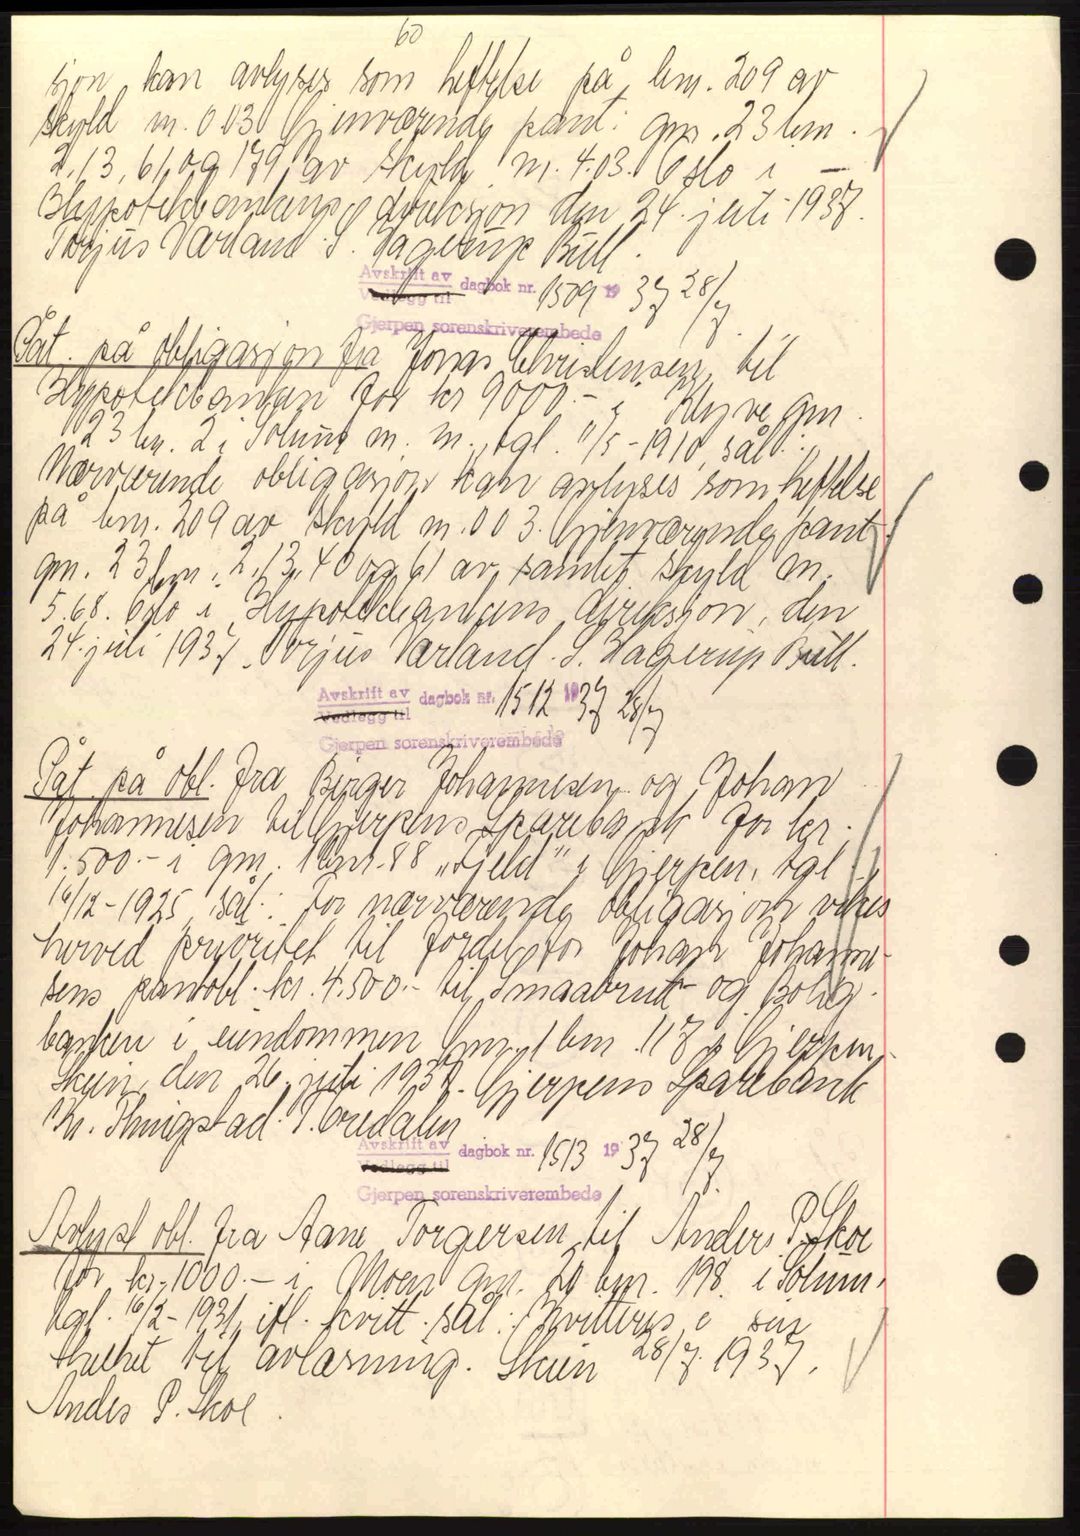 60
sjon kan avlyses som heftelse på bnr. 209 av
skyld m. 0.03. Gjenværende pant: gnr. 23 bnr.
2, 13, 61, og 179 av skyld m. 4.03. Oslo i
Hypotekbankens direksjon den 24. juli 1937.
Torjus Værland S. Hagerup Bull.
Avskrift av dagbok nr. 1509 1937 28/7
Vedlegg til
Gjerpen sorenskriverembede
Påt. på obligasjon fra Jonas Christensen til
Hypotekbanken for kr 9000.- i Klyve gnr.
23 bnr. 2 i Solum m. m., tgl. 11/5-1910, sål.:
Nærværende obligasjon kan avlyses som heftelse
på bnr. 209 av skyld m. 0 0 3. Gjenværende pant
gnr. 23 bnr. 2, 13, 40 og 61 av samlet skyld m.
5.68. Oslo i Hypotekbankens direksjon, den
24. juli 1937. Torjus Værland. S. Hagerup Bull.
Avskrift av dagbok nr. 1512 1937 28/7
Vedlegg til
Gjerpen sorenskriverembede
Påt. på obl. fra Birger Johannesen og Johan
Johannesen til Gjerpens Sparebank for kr.
1.500.- i gnr. 1 bnr. 88 „Fjeld” i Gjerpen, tgl.
16/12-1925, sål.: For nærværende obligasjon vikes
herved prioritet til fordel for Johan Johanne-
sens pantobl. kr. 4.500.- til Smaabruk og Bolig-
banken i eiendommen Gnr. 1 bnr. 117 i Gjerpen.
Skien, den 26. juli 1937. Gjerpens Sparebank
Avskrift av dagbok nr. 1513 1937 28/7
Vedlegg til
Gjerpen sorenskriverembede
Avlyst obl. fra Aane Torgersen til Anders P. Skoe
for kr. 1000.- i Moen gnr. 20 bnr. 198 i Solum,
tgl. 16/2-1931, ifl. kvitt. sål.: Kvitteres i sin
helhet til avlæsning. Skien 28/7. 1937.
Andes P. Skoe.